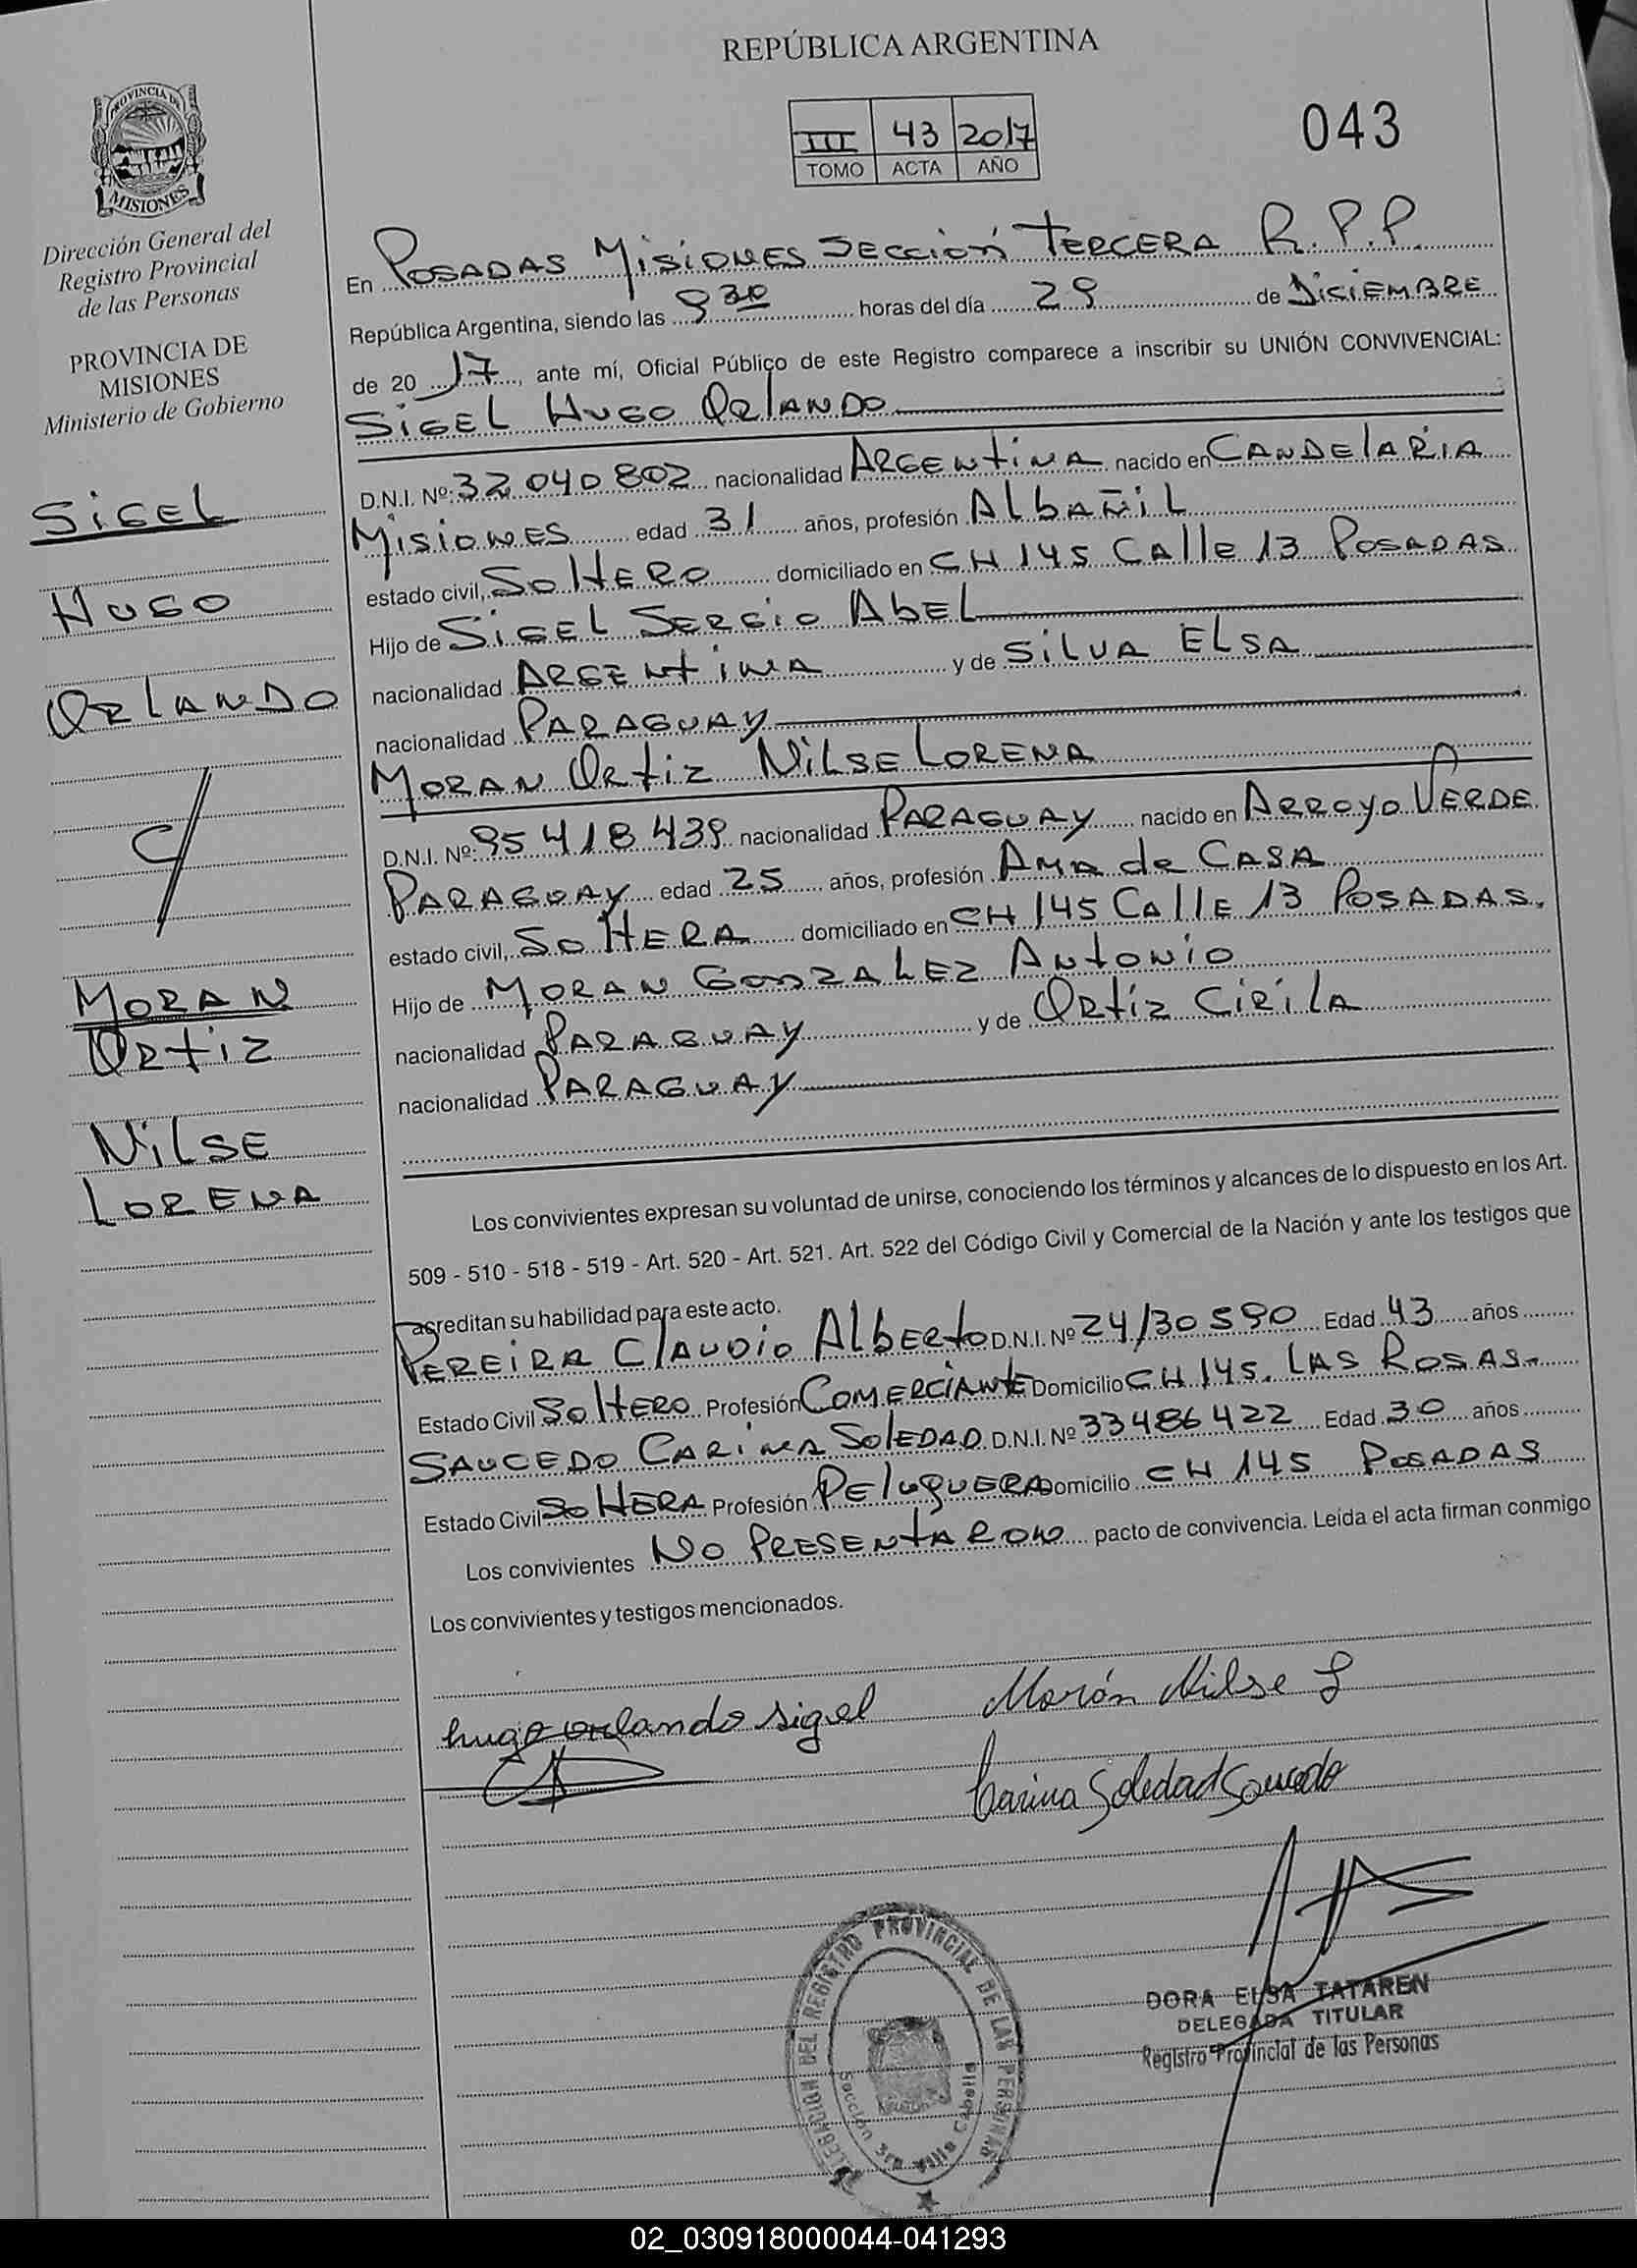 REPÚBLICA ARGENTINA
III 43 2017
TOMO ACTA AÑO
043
PROVINCIA DE
MISIONES
Dirección General del
Registro Provincial
de las Personas
PROVINCIA DE
MISIONES
Ministerio de Gobierno
SIGEL
HUGO
ORLANDO
C/
MORAN
ORTIZ
NILSE
LORENA
En POSADAS MISIONES SECCIÓN TERCERA R.P.P.
República Argentina, siendo las 9 30 horas del día 29 de DICIEMBRE
de 20 17, ante mí, Oficial Público de este Registro comparece a inscribir su UNIÓN CONVIVENCIAL:
SIGEL HUGO ORLANDO
D.N.I. Nº: 32 040 802 nacionalidad ARGENTINA nacido en CANDELARIA
MISIONES edad 31 años, profesión ALBAÑIL
estado civil, SOLTERO domiciliado en CH 145 CALLE 13 POSADAS
Hijo de SIGEL SERGIO ABEL
nacionalidad ARGENTINA y de SILVA ELSA
nacionalidad PARAGUAY
MORAN ORTIZ NILSE LORENA
D.N.I. Nº: 95 418 439 nacionalidad PARAGUAY nacido en ARROYO VERDE
PARAGUAY edad 25 años, profesión AMA de CASA
estado civil, SOLTERA domiciliado en CH 145 CALLE 13 POSADAS.
Hijo de MORAN GONZALEZ ANTONIO
nacionalidad PARAGUAY y de ORTIZ CIRILA
nacionalidad PARAGUAY
Los convivientes expresan su voluntad de unirse, conociendo los términos y alcances de lo dispuesto en los Art.
509 - 510 - 518 - 519 - Art. 520 - Art. 521. Art. 522 del Código Civil y Comercial de la Nación y ante los testigos que
acreditan su habilidad para este acto.
PEREIRA CLAUDIO ALBERTO D.N.I. Nº 24130590 Edad 43 años
Estado Civil SOLTERO Profesión COMERCIANTE Domicilio CH 145. LAS ROSAS.
SAUCEDO CARINA SOLEDAD D.N.I. Nº 33486422 Edad 30 años
Estado Civil SOLTERA Profesión PELUQUERA Domicilio CH 145 POSADAS
Los convivientes NO PRESENTARON pacto de convivencia. Leída el acta firman conmigo
Los convivientes y testigos mencionados.
hugo orlando sigel Morán Nilse L
Carina Soledad Saucedo
DORA ELSA TATAREN
DELEGADA TITULAR
Registro Provincial de las Personas
DELEGACION DEL REGISTRO PROVINCIAL DE LAS PERSONAS
Sección 3ra Villa Cabello
02_030918000044-041293